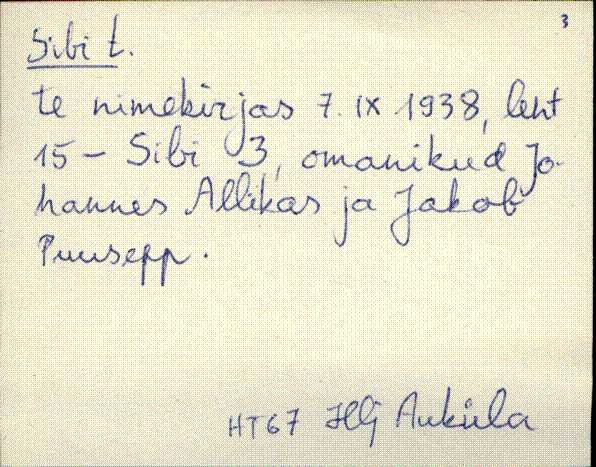 3
Sibi t.
te nimekirjas 7. IX 1938, leht
15 - Sibi 3, omanikud Jo-
hannes Allikas ja Jakob
Puusepp.
HT67 Hlj Auküla